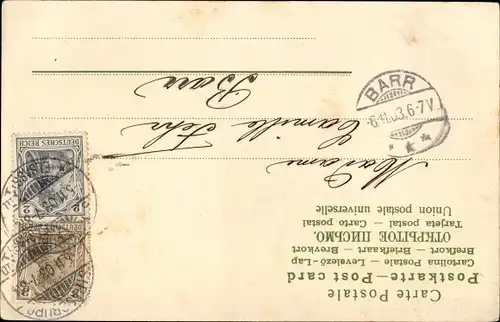 Carte Postale
Postkarte—Post card
Cartolina Postale - Levelező-Lap
Brefkort — Briefkaart — Brevkort
ОТКРЫТОЕ ПИСЬМО.
Tarjeta postal — Carto postal
Union postale universelle
Madame
Camille Fehr
Barr
BARR
6.11.03.6-7V.
DEUTSCHES REICH